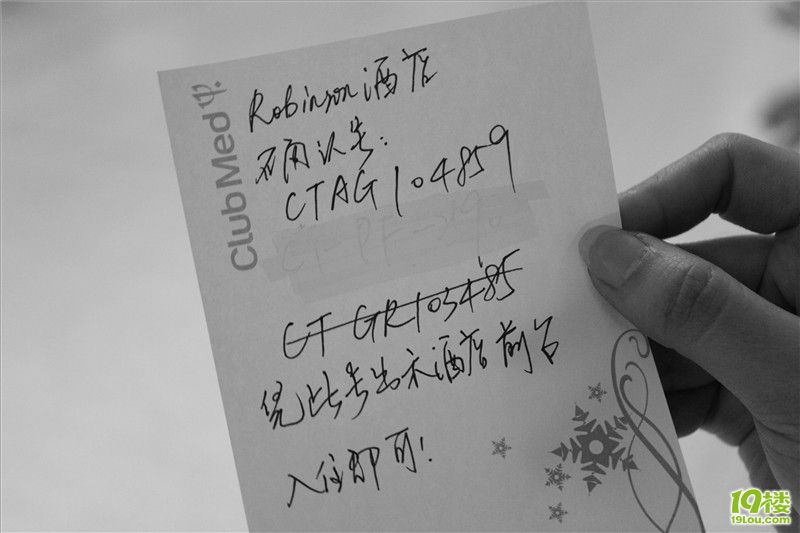 Club Med
Robinson酒店
确认号:
CTAG104859
CT GR103485
凭此号出示酒店前台
入住即可!
19楼
19lou.com